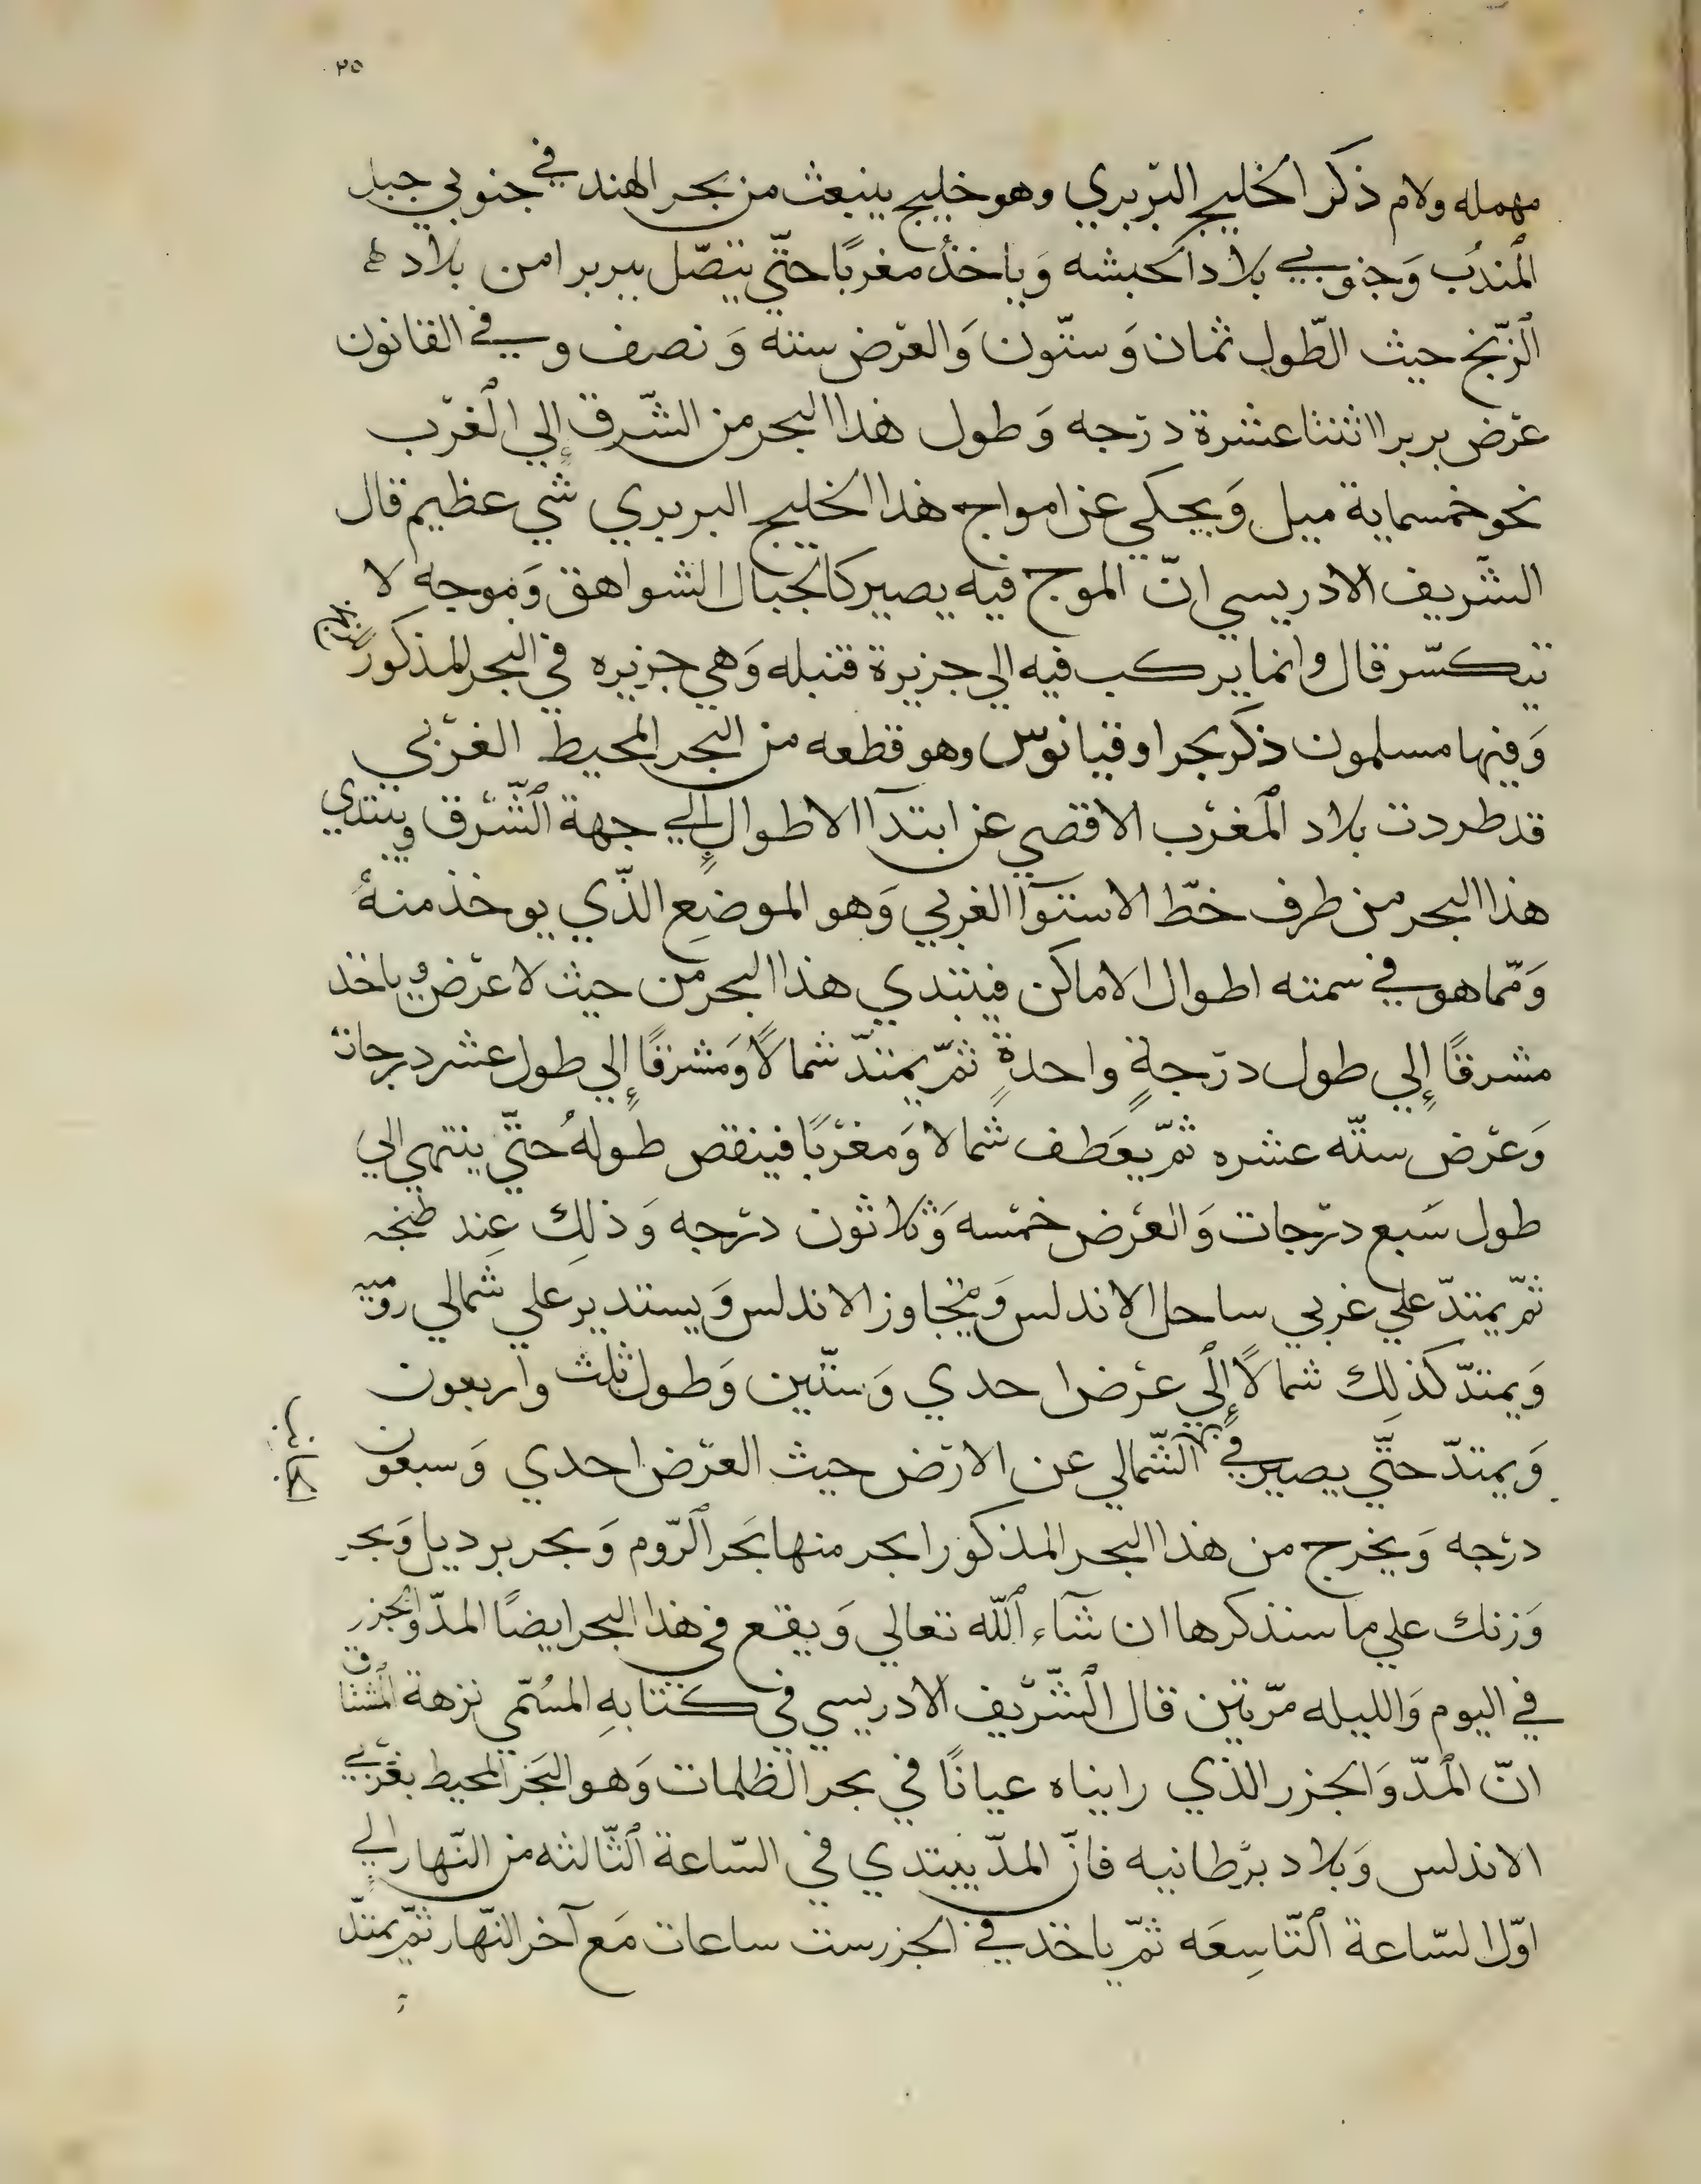 ٢٥
مهمله ولام ذكر الخليج البّربري وهو خليج ينبعث من بحر الهند في جنوبي جبل
المندب وَجنوبي بلاد الحبشه وَياخذ مغربًا حتّي يتصّل ببربرا من بلاد
الزّنج حيث الطّول ثمان وَستّون وَالعرْض سته وَ نصف وفي القانون
عرْض بربرا اثنتا عشرة درْجه وَ طول هذا البحر من الشّرق إلي الغرْب
نحو خمسماية ميل وَيحكي عن امواج هذا الخليج البربري شي عظيم قال
الشّريف الادريسي انّ الموج فيه يصير كالجبال الشواهق وَموجه لا
يتكسّر قال وانما يركب فيه الي جزيرة قنبله وَهي جزيره في البحر المذكور
وَفيها مسلمون ذكر بحر اوقيانوس وهو قطعه من البحر المحيط الغرْبي
قد طردت بلاد المغرْب الاقصي عن ابتدآ الاطوال إلي جهة الشّرْق ويبتدي
هذا البحر من طرف خطّ الاستوآ الغربي وَهو الموضِع الذّي يوخذ منهُ
وَممّا هو في سمته اطوال الاماكن فيبتدي هذا البحر من حيث لا عرْض وياخذ
مشرقًا إلي طول درْجةٍ واحدةٍ ثمّ يمتدّ شمالًا وَمشرقًا إلي طول عشر درجات
وَعرْض ستّه عشره ثمّ يعَطف شمالا وَمغرْبًا فينقص طولهُ حتّي ينتهي الي
طول سَبع درْجات وَالعرْض خمْسه وَثلاثون درْجه وَ ذلِك عِند طنجه
ثمّ يمتدّ علي غربي ساحل الاندلس وَيتجاوز الاندلس وَيستدير علي شمالي روميه
وَيمتدّ كذلِك شمالًا إلي عرْض احدي وَستّين وَطول ثلث واربعون
وَيمتدّ حتّي يصير في الشّمالي عن الارْض حيث العرْض احدي وَسبعون
درْجه وَيخرج من هذا البحر المذكور ابحر منها بَحر الرّوم وَ بحر برديل وَبحر
وَرنك علي ما سنذكرها ان شآء اللّه تعالي وَ يقع في هذا البحر ايضًا المدّ والجزر
في اليوم وَالليله مرّتين قال الشّرّيف الادريسي في كتابهِ المسُمّي نزهة المشتاق
انّ المدّ وَالجزر الذي رايناه عيانًا في بحر الظلمات وَهو البَحر المحيط بغرْبي
الاندلس وَبلاد برْطانيه فانّ المدّ يبتدي في السّاعة الثّالثه من النّهار إلي
اوّل السّاعة التّاسِعَه ثمّ ياخذ في الجزر ست ساعات مَع آخر النّهار ثمّ يمتدّ